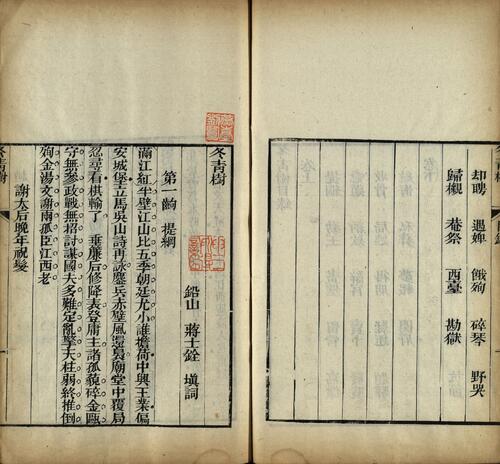 却聘 遇婢 餓殉 碎琴 野哭
歸櫬 菴祭 西臺 勘獄
冬青樹
鉛山 蔣士銓 填詞
第一齣 提綱
滿江紅半壁江山比五季朝廷尤小誰擔荷中興王業偏
安城堡立馬吳山詩再詠鏖兵赤壁風還裊廟堂中覆局
忍尋看棋輸了 垂簾后修降表登庸主諸孤藐碎金甌
守無參政戰無招討謀國大多難定亂擎天柱弱終推倒
殉金湯文謝兩孤臣江西老
謝太后晚年祝髮
冬青樹